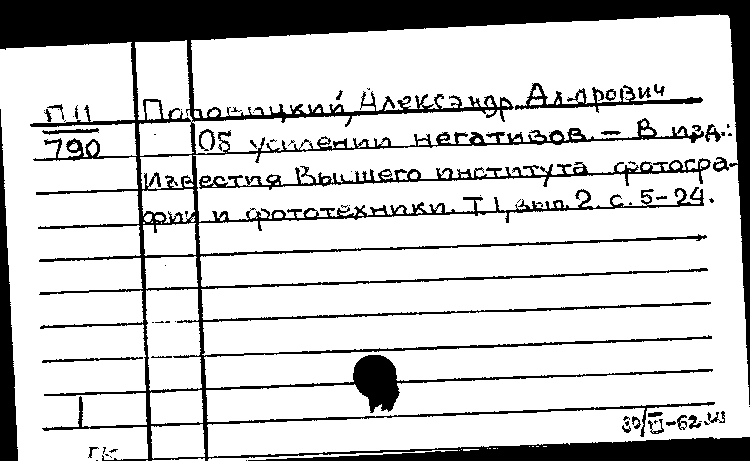 П11 Поповицкий, Александр Ал-дрович
790 Об усилении негативов. – В изд.:
Известия Высшего института фотогра-
фии и фототехники. Т. 1, вып. 2. с. 5-24.